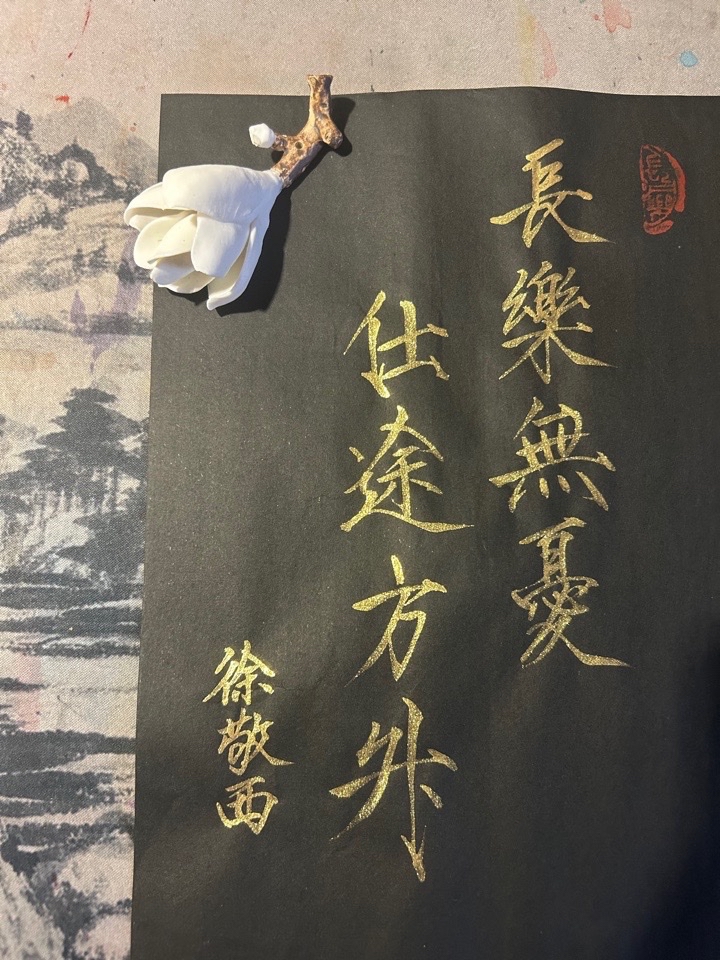 長樂無憂
仕途方
徐敬西